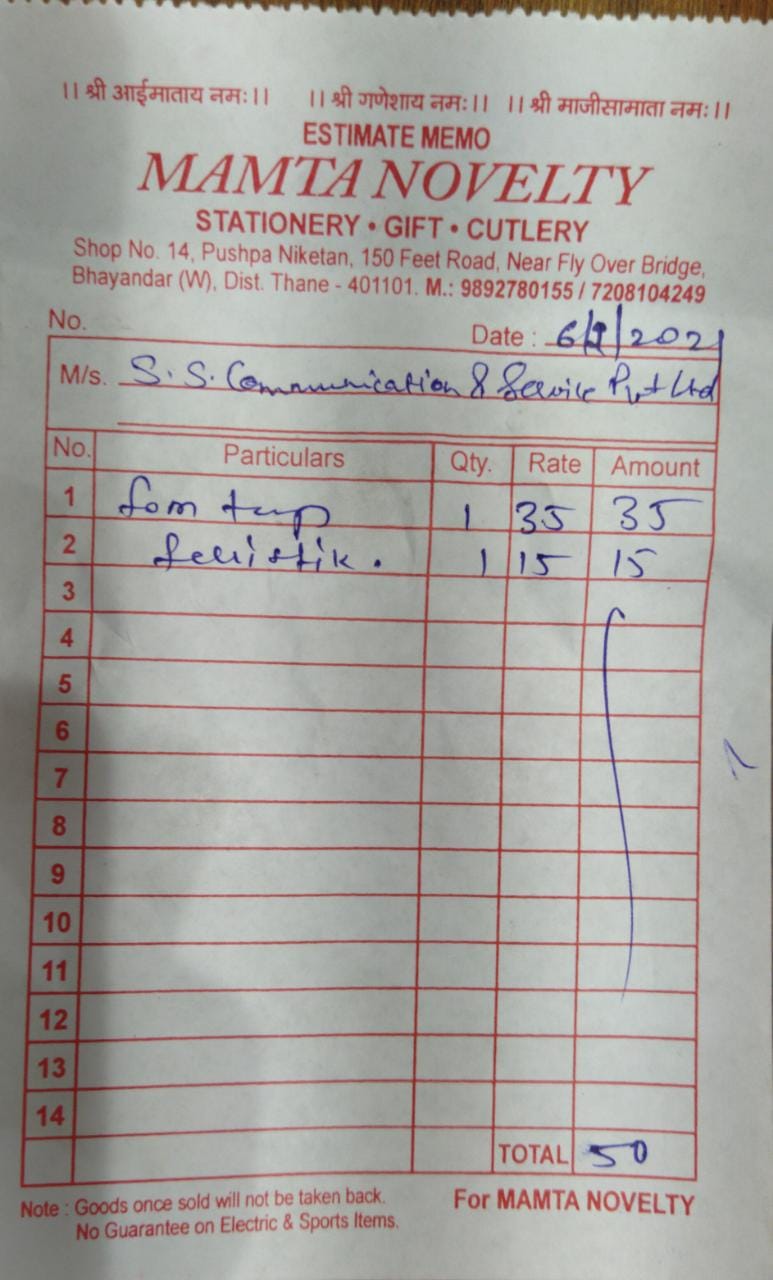 ।। श्री आईमाताय नमः।। ।। श्री गणेशाय नमः।। ।। श्री माजीसामाता नमः।।
ESTIMATE MEMO
MAMTA NOVELTY
STATIONERY • GIFT • CUTLERY
Shop No. 14, Pushpa Niketan, 150 Feet Road, Near Fly Over Bridge,
Bhayandar (W), Dist. Thane - 401101. M.: 9892780155 / 7208104249
No.
Date : 6/9/2021
M/s. S. S. Communication & Service Pvt Ltd
No. Particulars Qty. Rate Amount
1 fom tap 1 35 35
2 1 15 15
3
4
5
6
7
8
9
10
11
12
13
14
TOTAL 50
Note : Goods once sold will not be taken back. For MAMTA NOVELTY
No Guarantee on Electric & Sports Items.